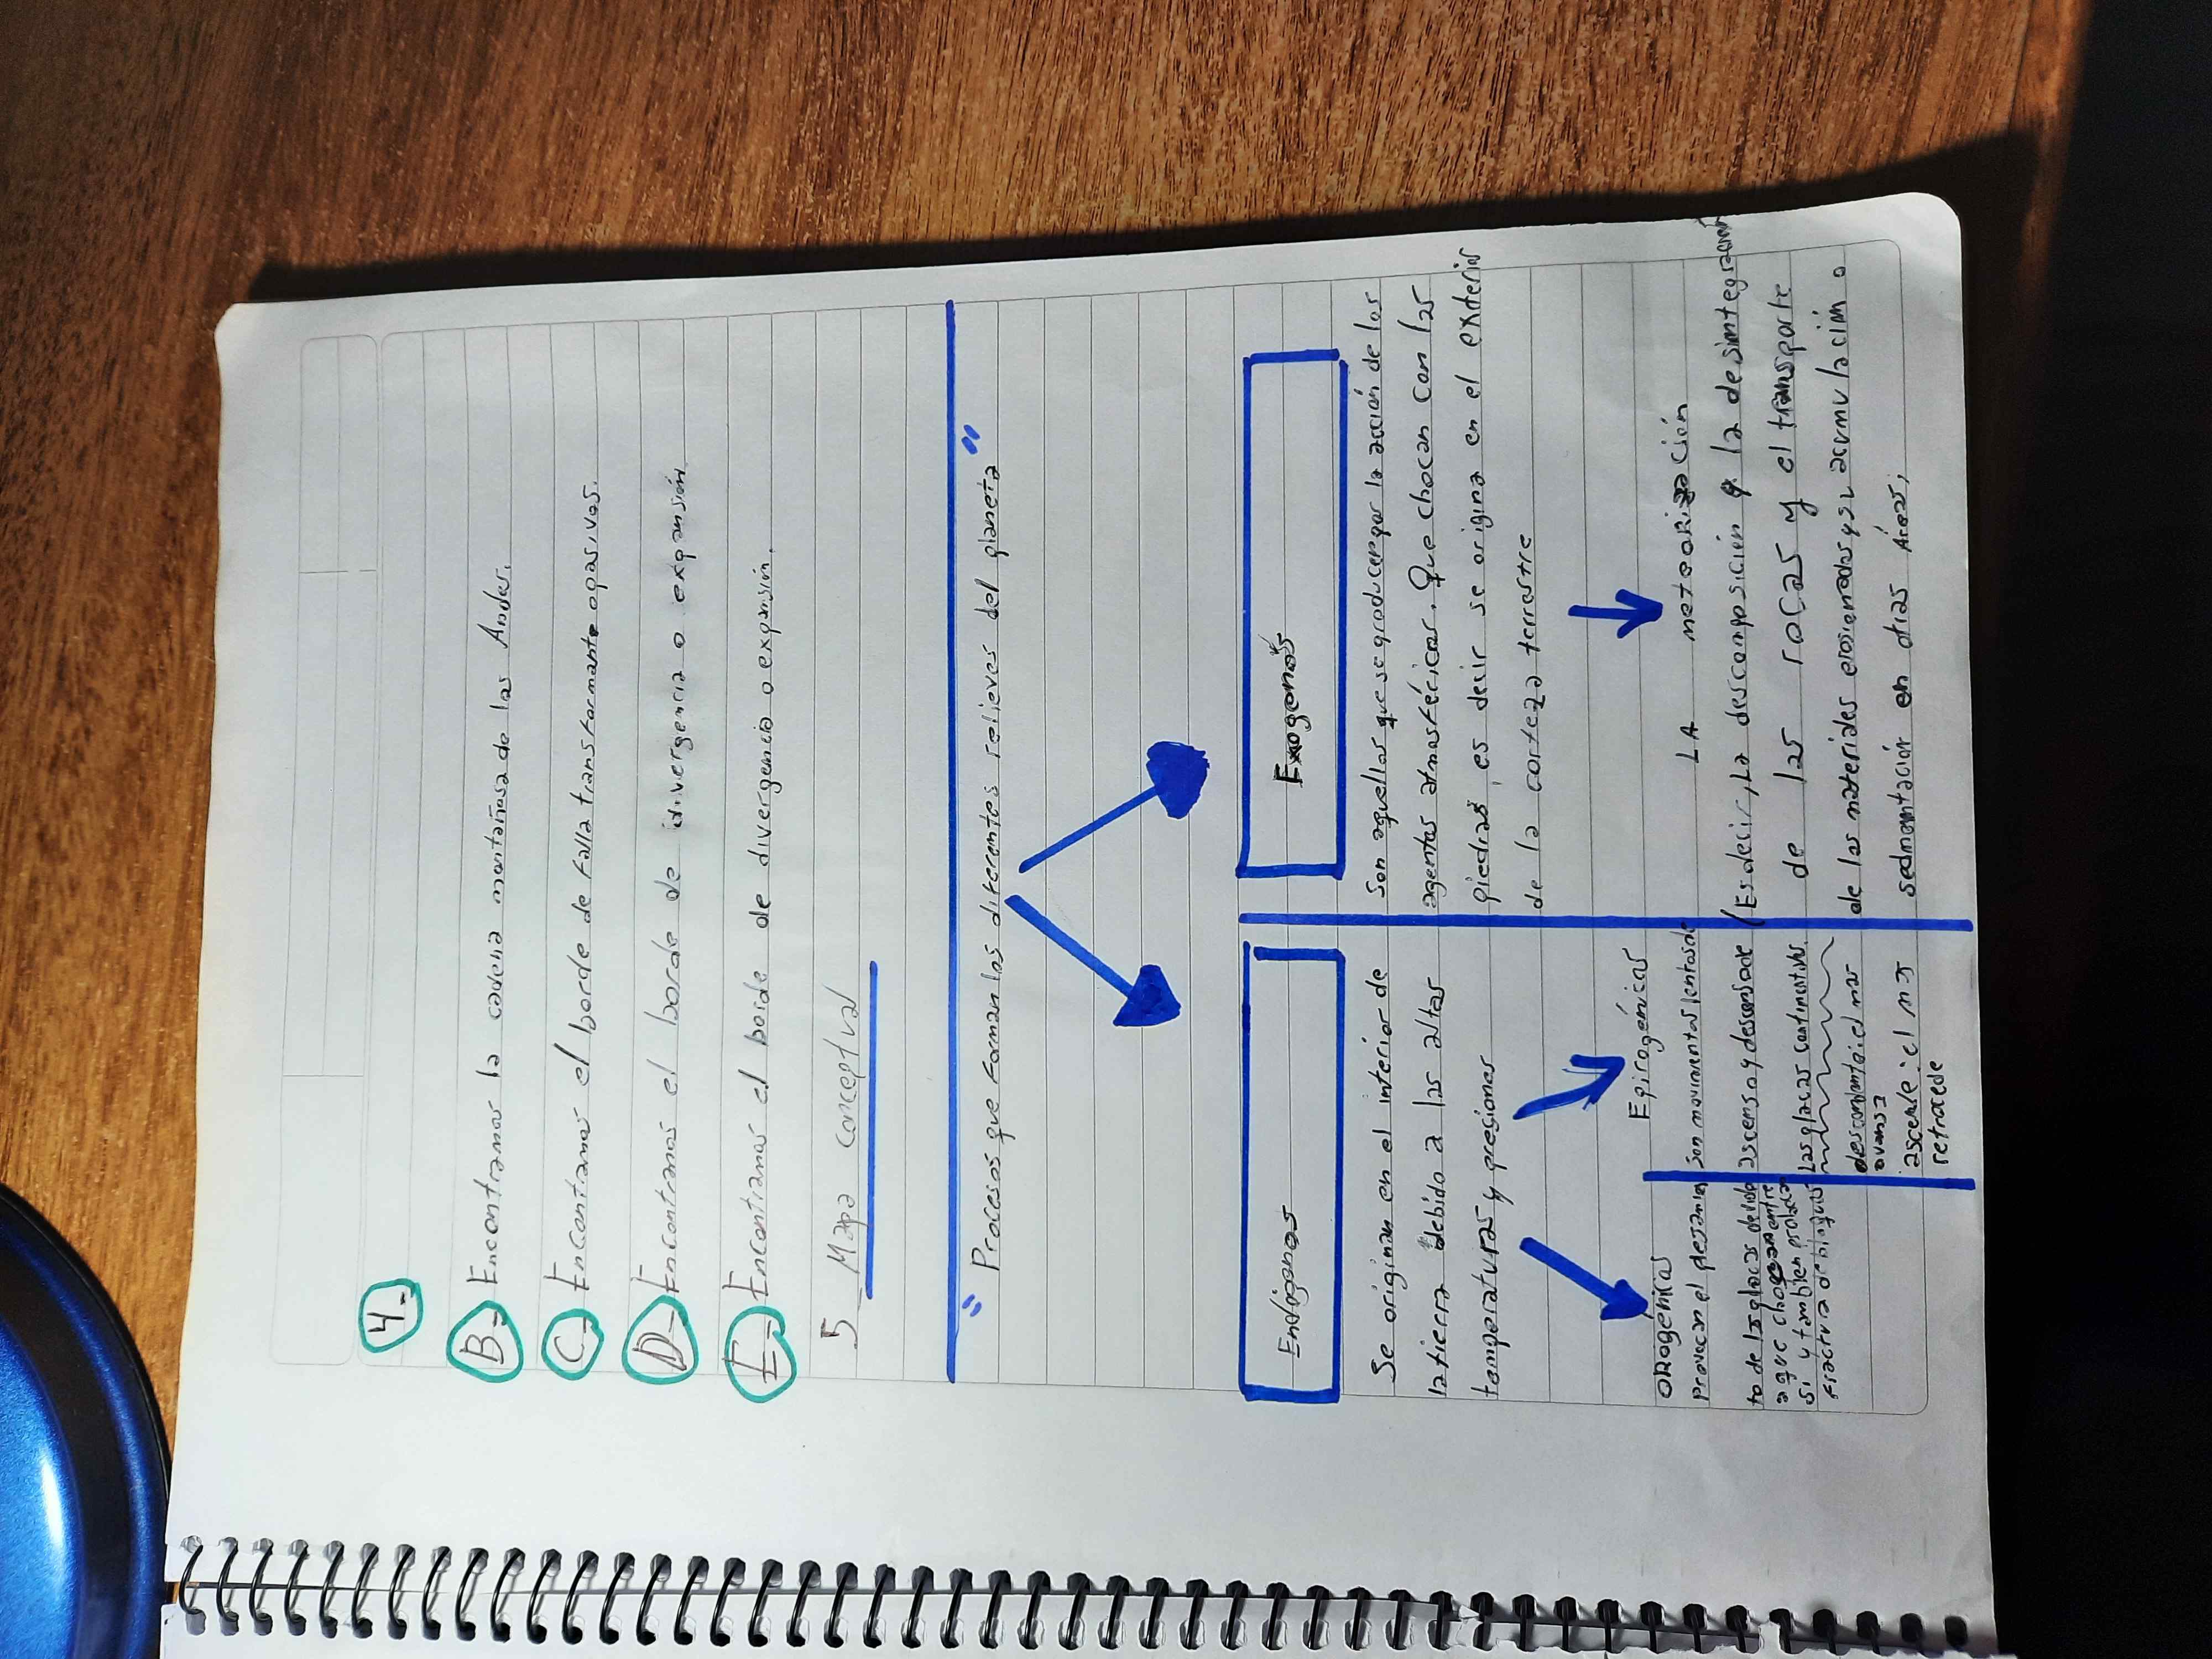 4-
B- Encontramos la cadena montañosa de los Andes.
C- Encontramos el borde de falla transformante o pasivos.
D- Encontramos el borde de divergencia o expansión.
E- Encontramos el borde de divergencia o expansión.
5 Mapa conceptual
" Procesos que forman los diferentes relieves del planeta "
Endógenos
Se originan en el interior de
la tierra debido a las altas
temperaturas y presiones
Orogénicos
Provocan el desplasamien
to de las placas devido
a que chocan entre
si y tambien producen
fractura de bloques
Epirogénicos
son movimientos lentos de
ascenso y descenso de
las placas continentales
descendente: el mar
avansa
asciende: el mar
retrocede
Exogenos
Son aquellos que se producen por la acción de los
agentes atmosféricos. Que chocan con las
piedras, es decir se origina en el exterior
de la corteza terrestre
LA meteorización
(Es decir, la descomposición y la desintegración
de las rocas y el transporte
de los materiales erosionados y su acumulación o
sedmentación en otras Áreas,